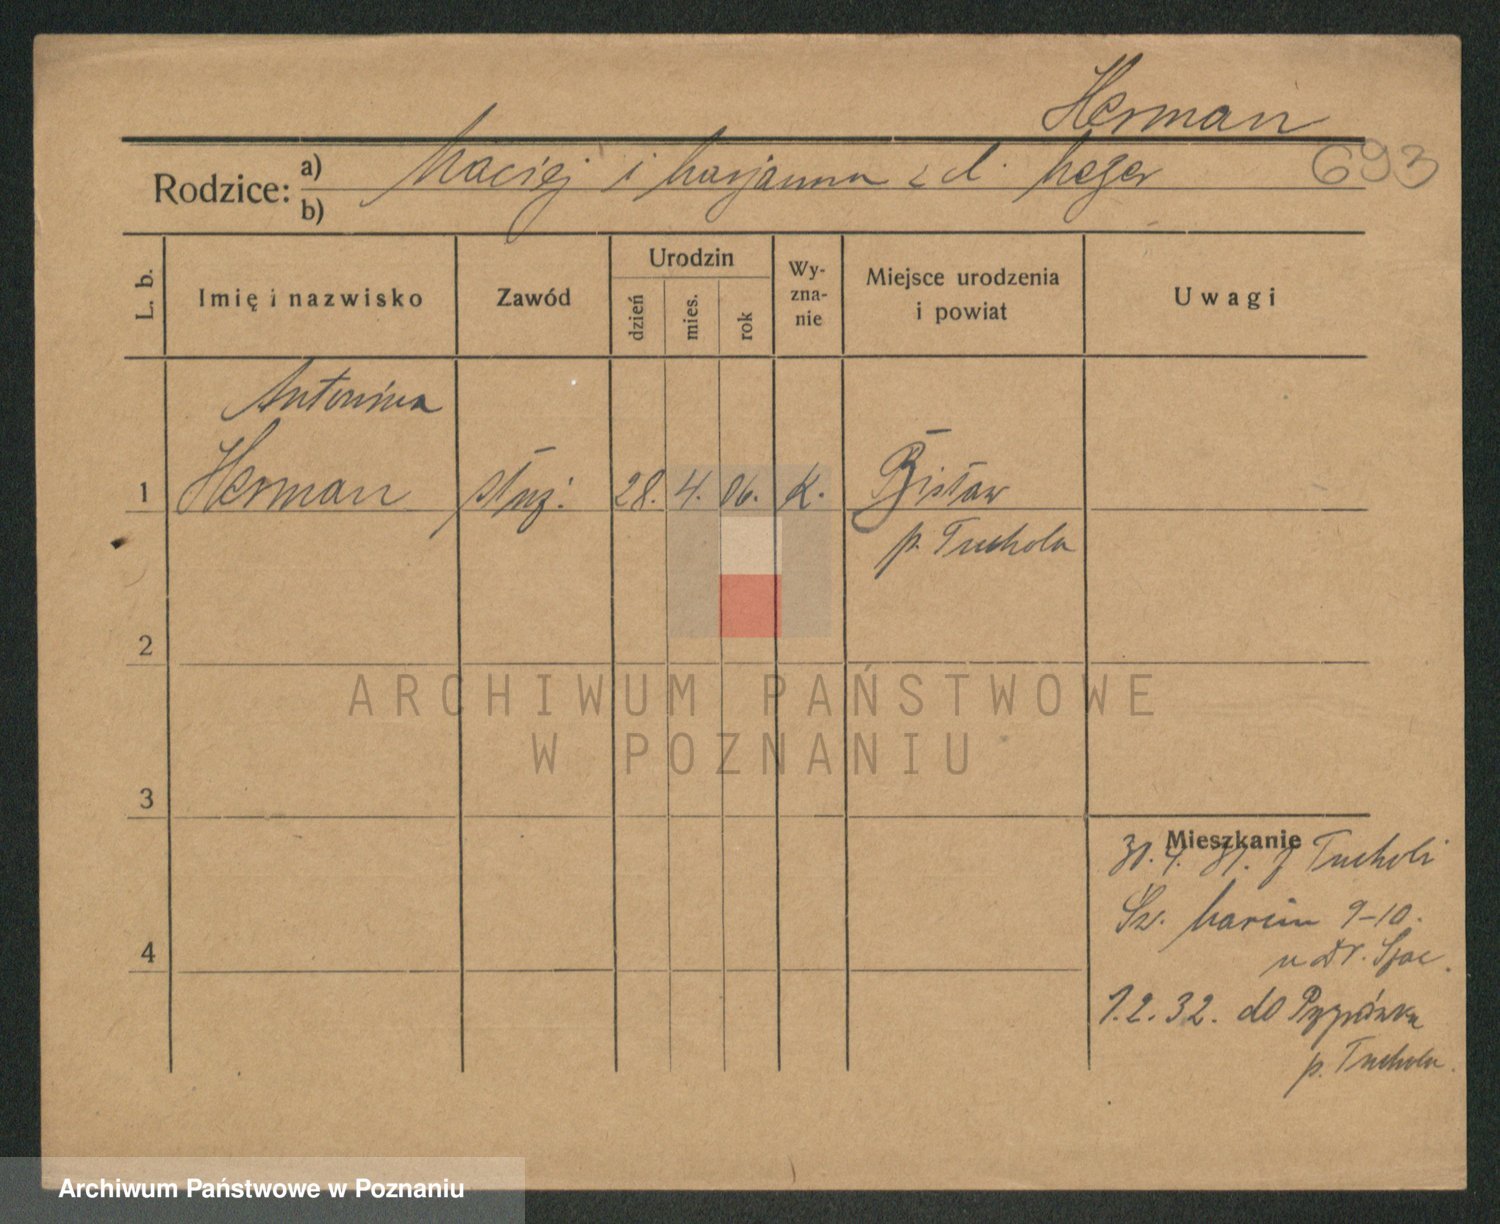 Herman
693
Rodzice: a) b) Maciej i Marjanna z d. Meger
L. b. Imię i nazwisko Zawód Urodzin dzień mies. rok Wyznanie Miejsce urodzenia i powiat Uwagi
Antonina
1 Herman służ. 28. 4. 06. K. Bisław
p. Tuchola
2
ARCHIWUM PAŃSTWOWE
W POZNANIU
3
Mieszkanie
4. 31. z Tucholi
Św. Marcin 9-10.
4
u Dr.
1.2.32. do
p. Tuchola.
Archiwum Państwowe w Poznaniu